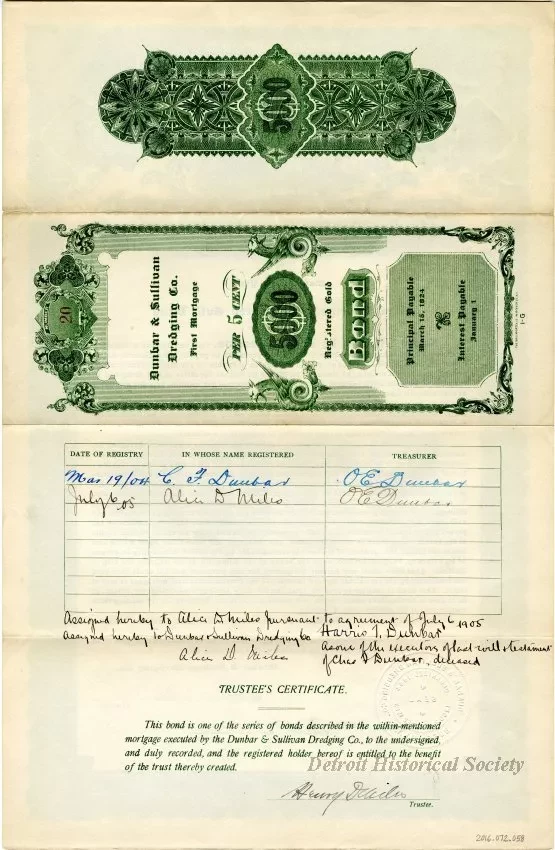 5000
20
Dunbar & Sullivan
Dredging Co.
First Mortgage
PER 5 CENT
5000
Registered Gold
Bond
Principal Payable
March 15, 1924
Interest Payable
January 1
DATE OF REGISTRY IN WHOSE NAME REGISTERED TREASURER
Mar 19/04 C. F. Dunbar O E Dunbar
July 6, 05 Alice D Miles O E Dunbar
Assigned hereby to Alice D Miles pursuant to agreement of July 6 1905
Harris T. Dunbar
As one of the executors of last will & testament
of Chas F Dunbar, deceased
Assigned hereby to Dunbar & Sullivan Dredging Co
Alice D. Miles
TRUSTEE'S CERTIFICATE.
This bond is one of the series of bonds described in the within-mentioned
mortgage executed by the Dunbar & Sullivan Dredging Co., to the undersigned,
and duly recorded, and the registered holder hereof is entitled to the benefit
of the trust thereby created.
Detroit Historical Society
Henry D Miles
Trustee.
2016.072.058